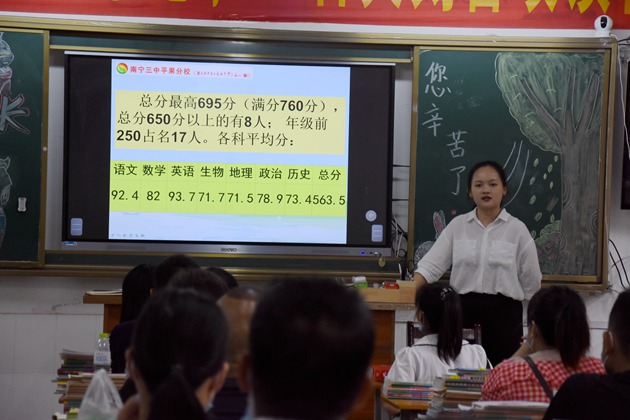 南宁三中平果分校
总分最高695分（满分760分），
总分650分以上的有8人； 年级前
250占名17人。各科平均分：
语文 数学 英语 生物 地理 政治 历史 总分
92.4 82 93.7 71.7 71.5 78.9 73.4 563.5
您
辛
苦
了